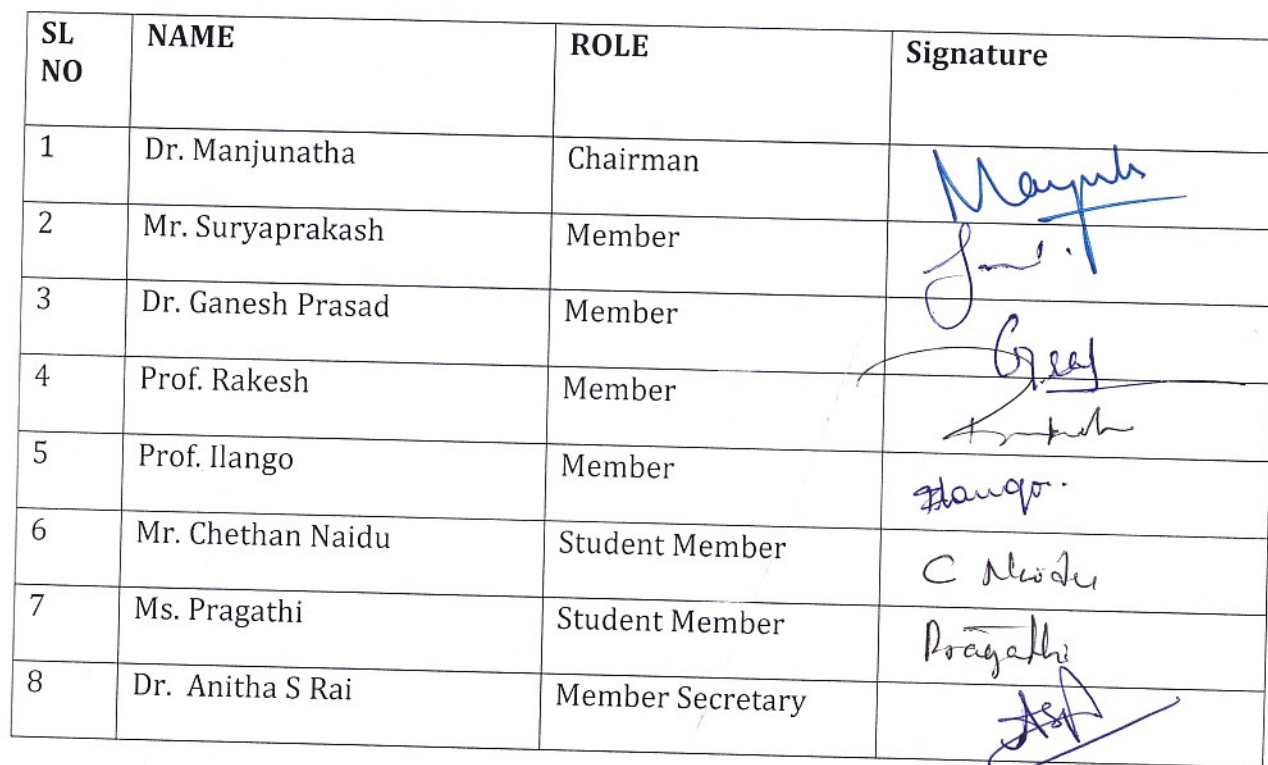 SL NO NAME ROLE Signature
1 Dr. Manjunatha Chairman
2 Mr. Suryaprakash Member
3 Dr. Ganesh Prasad Member
4 Prof. Rakesh Member
5 Prof. Ilango Member Ilango.
6 Mr. Chethan Naidu Student Member C Naidu
7 Ms. Pragathi Student Member Pragathi
8 Dr. Anitha S Rai Member Secretary